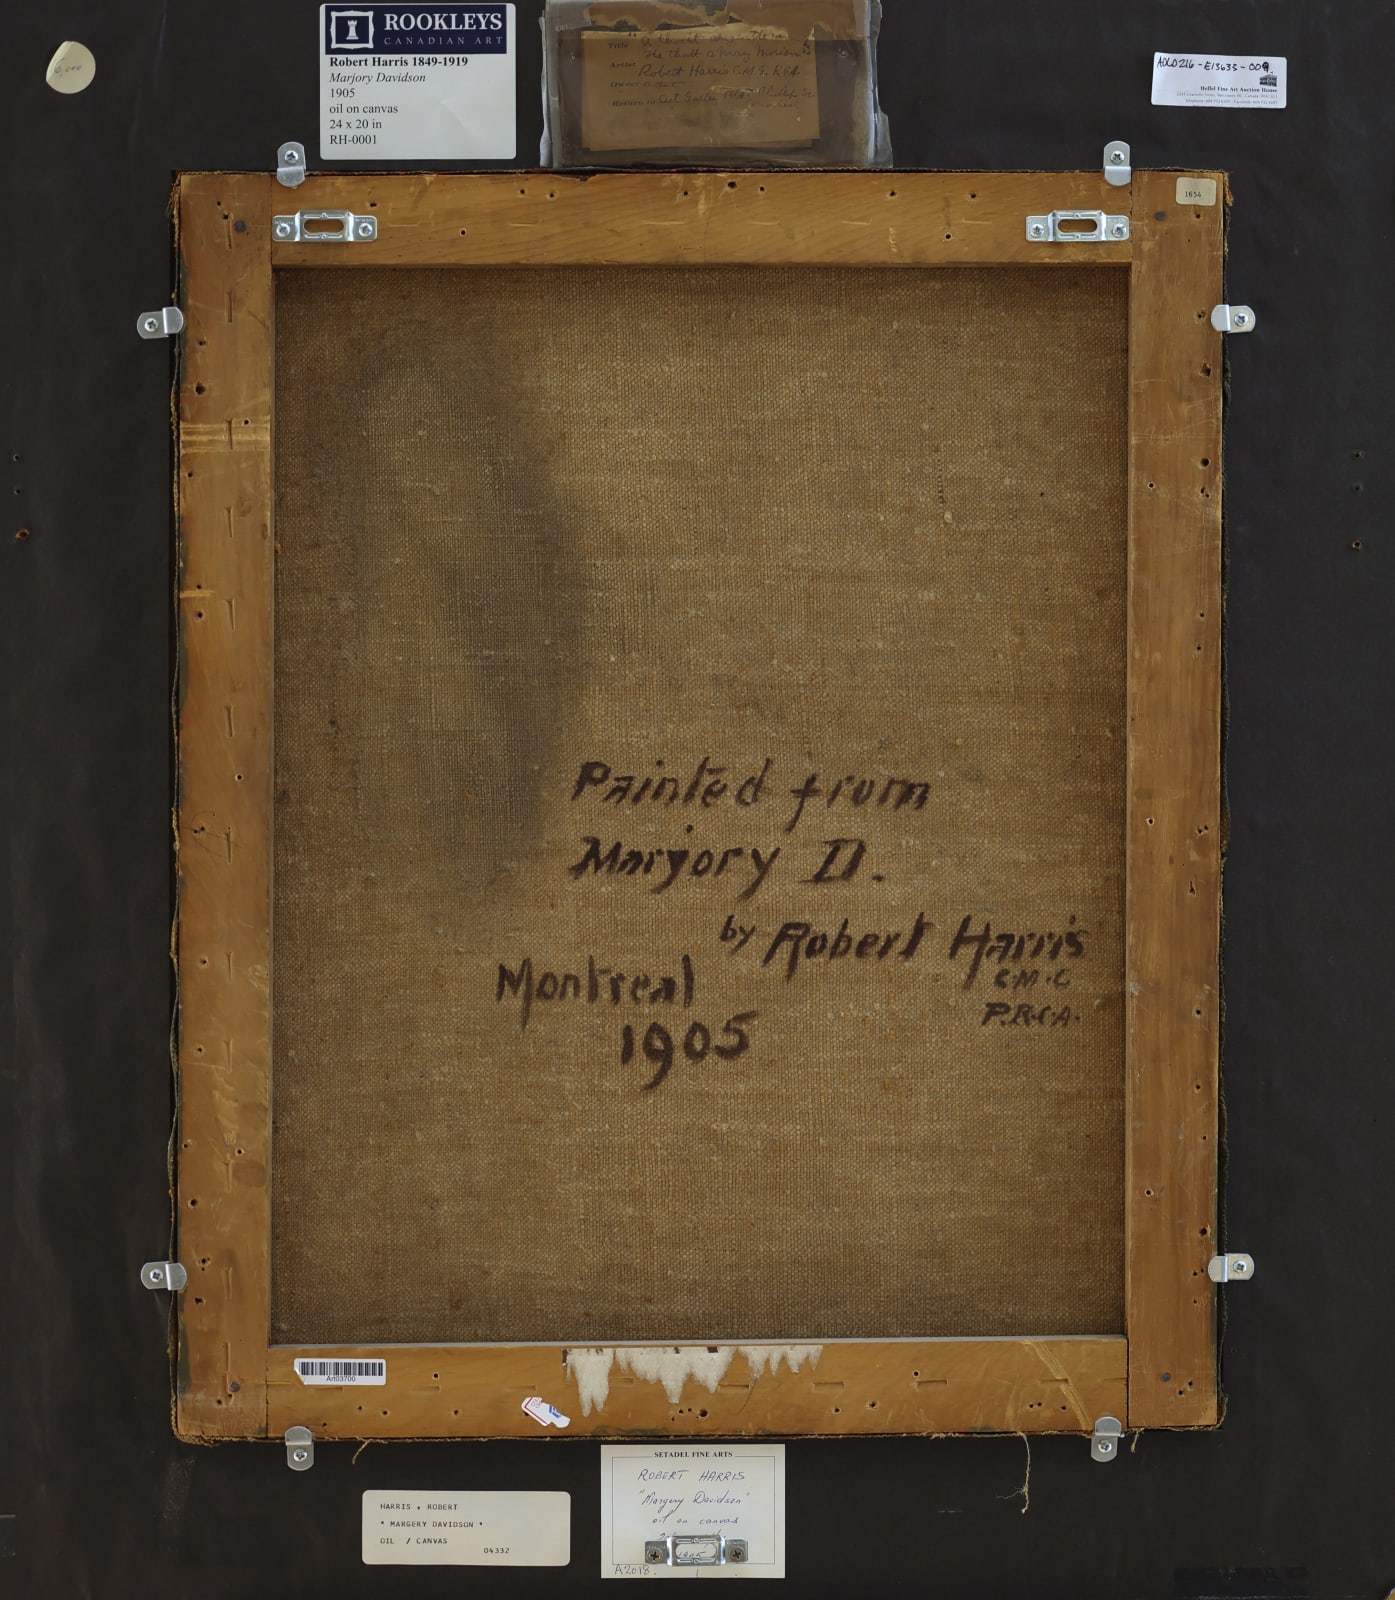 6,000
ROOKLEYS
CANADIAN ART
Robert Harris 1849-1919
Marjory Davidson
1905
oil on canvas
24 x 20 in
RH-0001
Title
Artist Robert Harris C.M.G. RCA
Owner
Return to Art
AOLD216-E13633-009
Heffel Fine Art Auction House
1654
Painted from
Marjory D.
by Robert Harris
C.M.G
P.R.C.A.
Montreal
1905
Art03700
HARRIS . ROBERT
" MARGERY DAVIDSON "
OIL / CANVAS
04332
SETADEL FINE ARTS
ROBERT HARRIS
"Margery Davidson"
oil on canvas
1905
A2018.